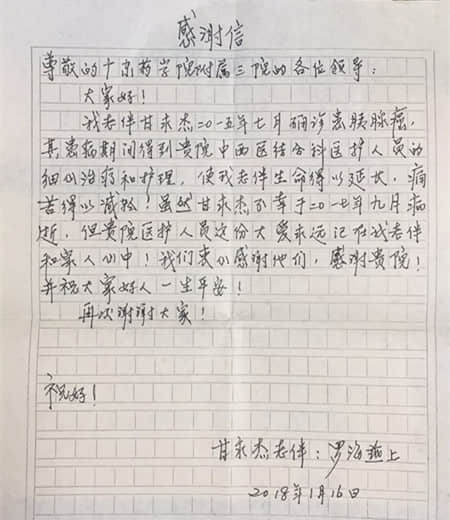 感谢信
尊敬的广东药学院附属三院的各位领导：
大家好！
我老伴甘求杰二〇一五年七月确诊患胰腺癌，
其患病期间得到贵院中西医结合科医护人员的
细心治疗和护理，使我老伴生命得以延长，痛
苦得以减轻！虽然甘求杰不幸于二〇一七年九月病
逝，但贵院医护人员这份大爱永远记在我老伴
和家人心中！我们衷心感谢他们，感谢贵院！
并祝大家好人一生平安！
再次谢谢大家！
祝好！
甘求杰老伴：罗海燕上
2018年1月16日